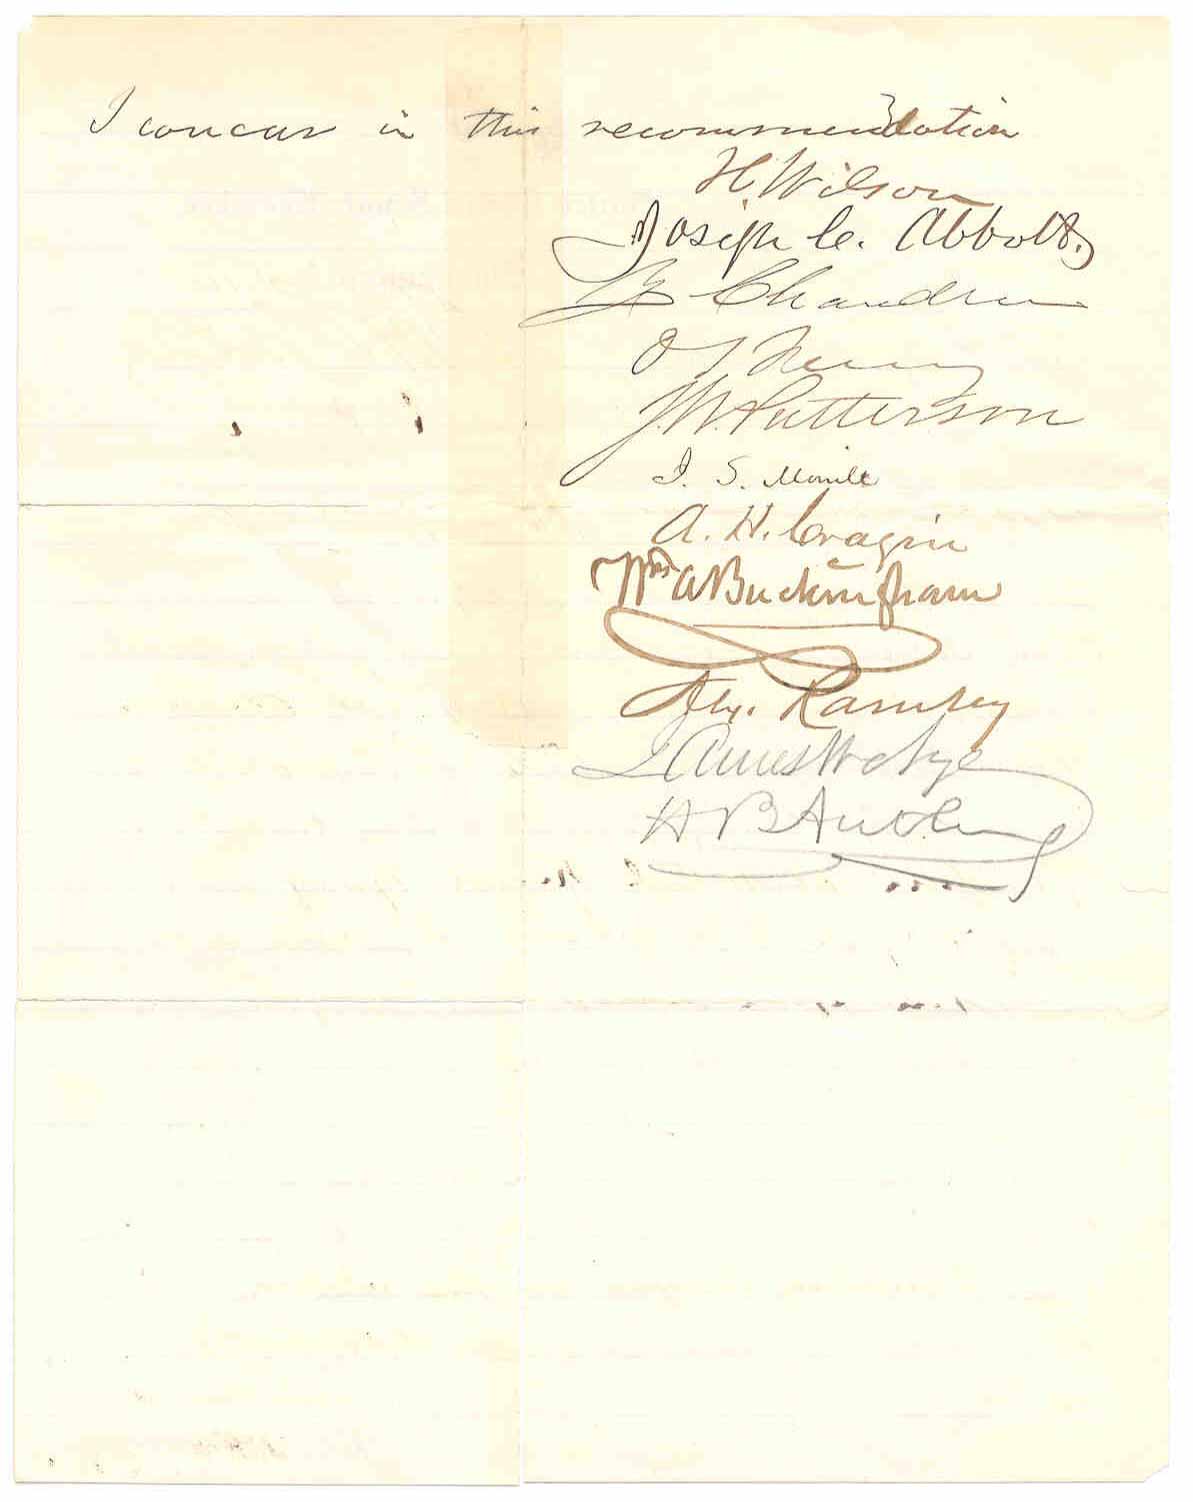 I concur in this recommendation
H. Wilson
Joseph C. Abbott.
Z Chandler
J. W. Patterson
J. S. Morrill
A. H. Cragin
Wm A Buckingham
Alex. Ramsey
James W Nye
H B Anthony